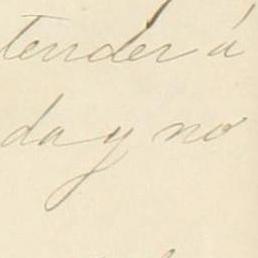 tender á
da y no